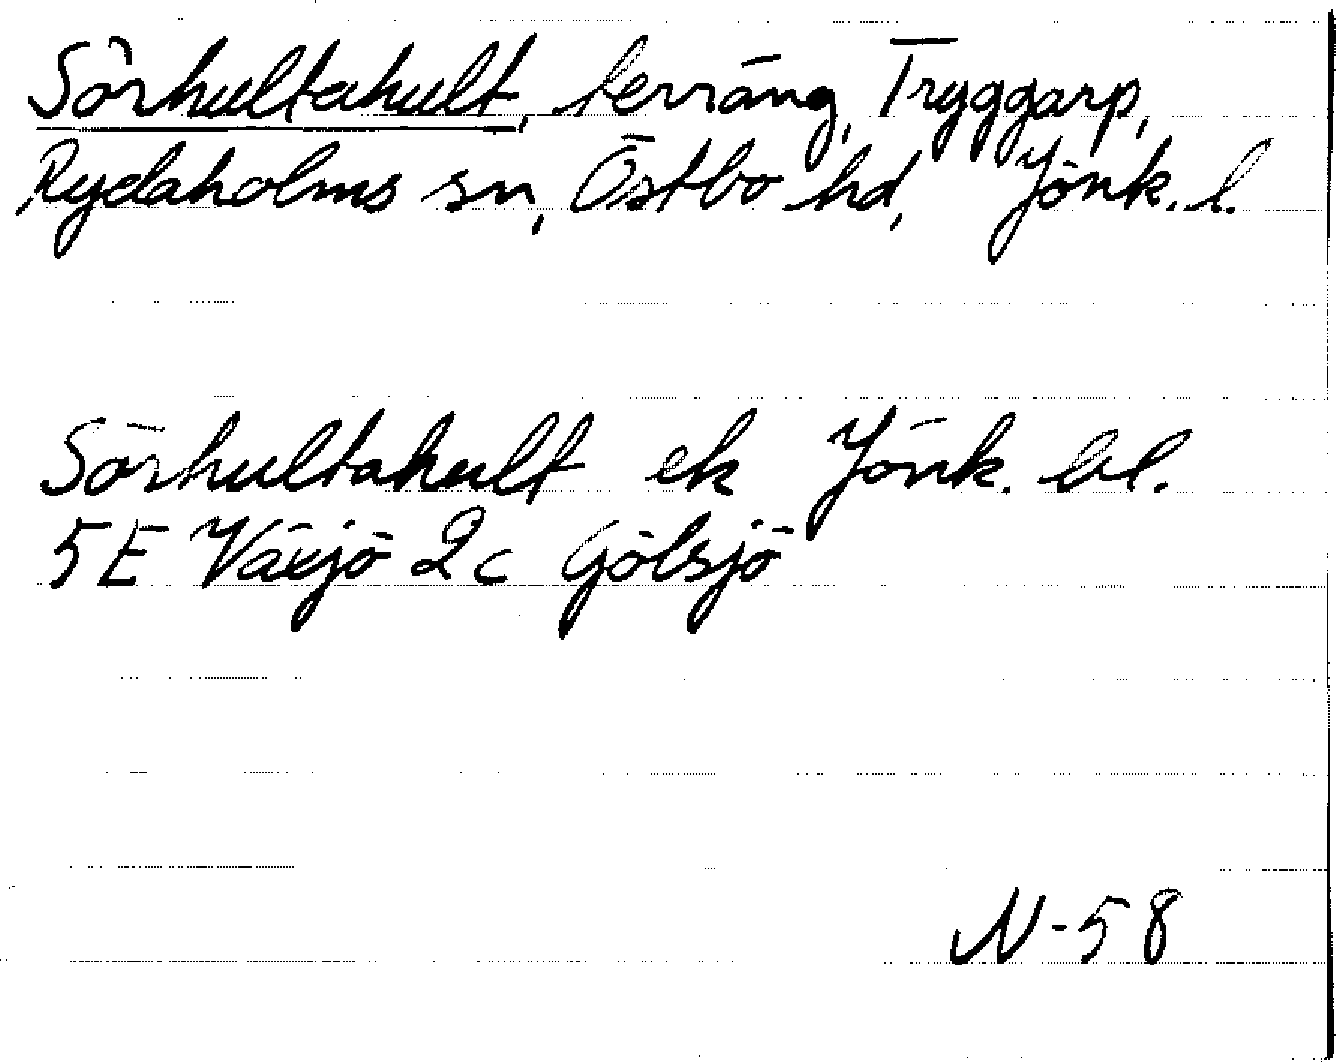 Sörhultahult, terräng, Tryggarp,
Rydaholms sn, Östbo hd, Jönk. l.
Sörhultahult ek Jönk. bl.
5E Växjö 2c Gölsjö
N-58